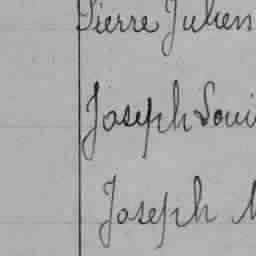 Pierre Julien
Joseph Loui
Joseph